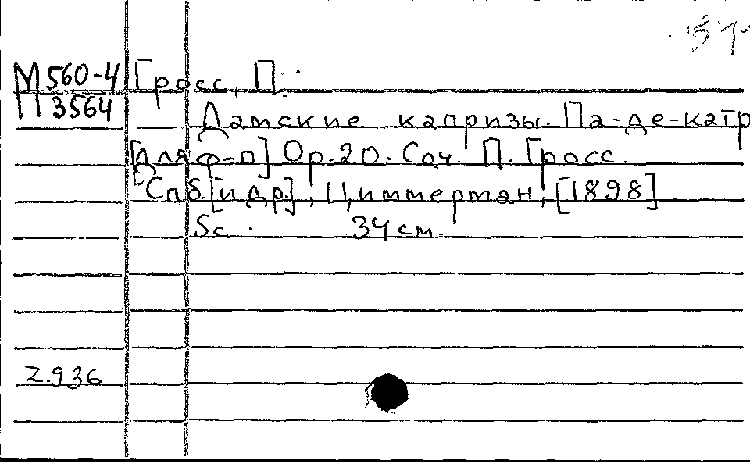 51
М 560-4 Гросс, П.
П 3564
Дамские капризы. Па-де-катр
[Для ф-п] Op. 20. Соч. П. Гросс.
Спб [и др.], Циммерман, [1898]
5 с. 34 см
Z.936